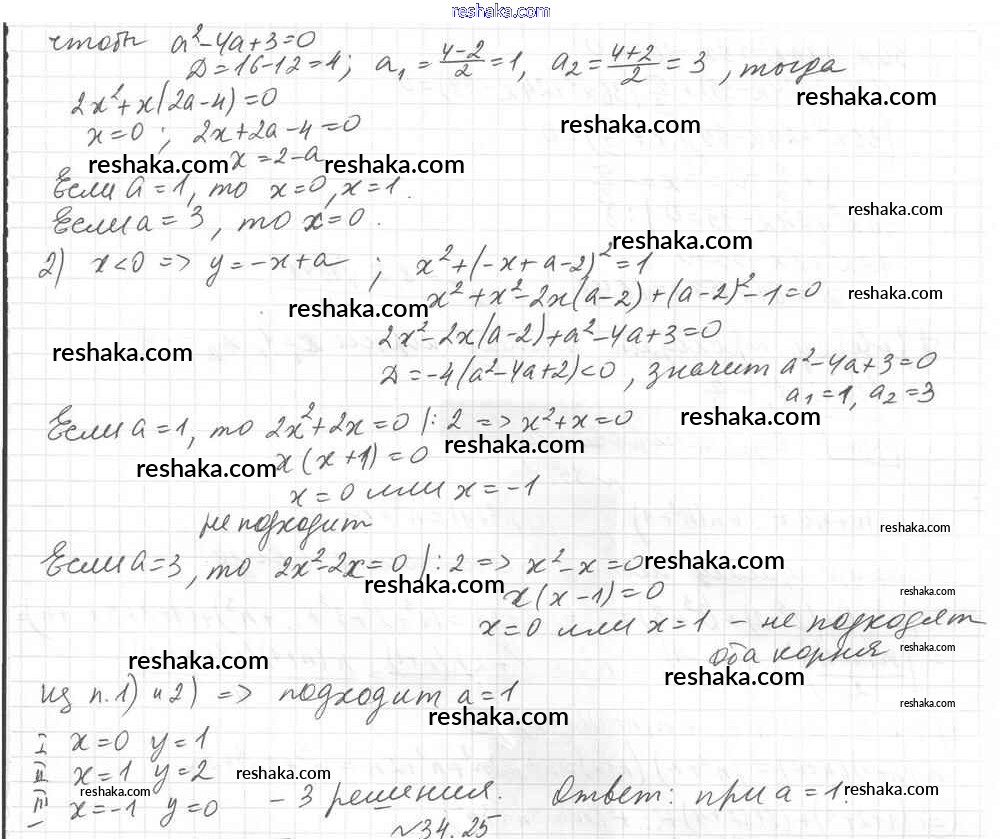 reshaka.com
чтобы a²-4a+3=0
D=16-12=4; a₁=(4-2)/2=1, a₂=(4+2)/2=3, тогда
reshaka.com
2x²+x(2a-4)=0
x=0; 2x+2a-4=0 reshaka.com
reshaka.com x=2-a reshaka.com
Если a=1, то x=0, x=1.
reshaka.com
Если a=3, то x=0.
reshaka.com
2) x<0 => y=-x+a; x²+(-x+a-2)²=1
reshaka.com x²+x²-2x(a-2)+(a-2)²-1=0 reshaka.com
2x²-2x(a-2)+a²-4a+3=0
reshaka.com
D=-4(a²-4a+2)<0, значит a²-4a+3=0
a₁=1, a₂=3
Если a=1, то 2x²+2x=0 |:2 => x²+x=0 reshaka.com
reshaka.com x(x+1)=0 reshaka.com
x=0 или x=-1
не подходит
reshaka.com
Если a=3, то 2x²-2x=0 |:2 => x²-x=0 reshaka.com
reshaka.com x(x-1)=0 reshaka.com
x=0 или x=1 - не подходят
reshaka.com оба корня reshaka.com
reshaka.com
из п.1) и 2) => подходит a=1
reshaka.com reshaka.com
I x=0 y=1
II x=1 y=2 reshaka.com
III reshaka.com x=-1 y=0 - 3 решения. Ответ: при a=1. reshaka.com
№34.25